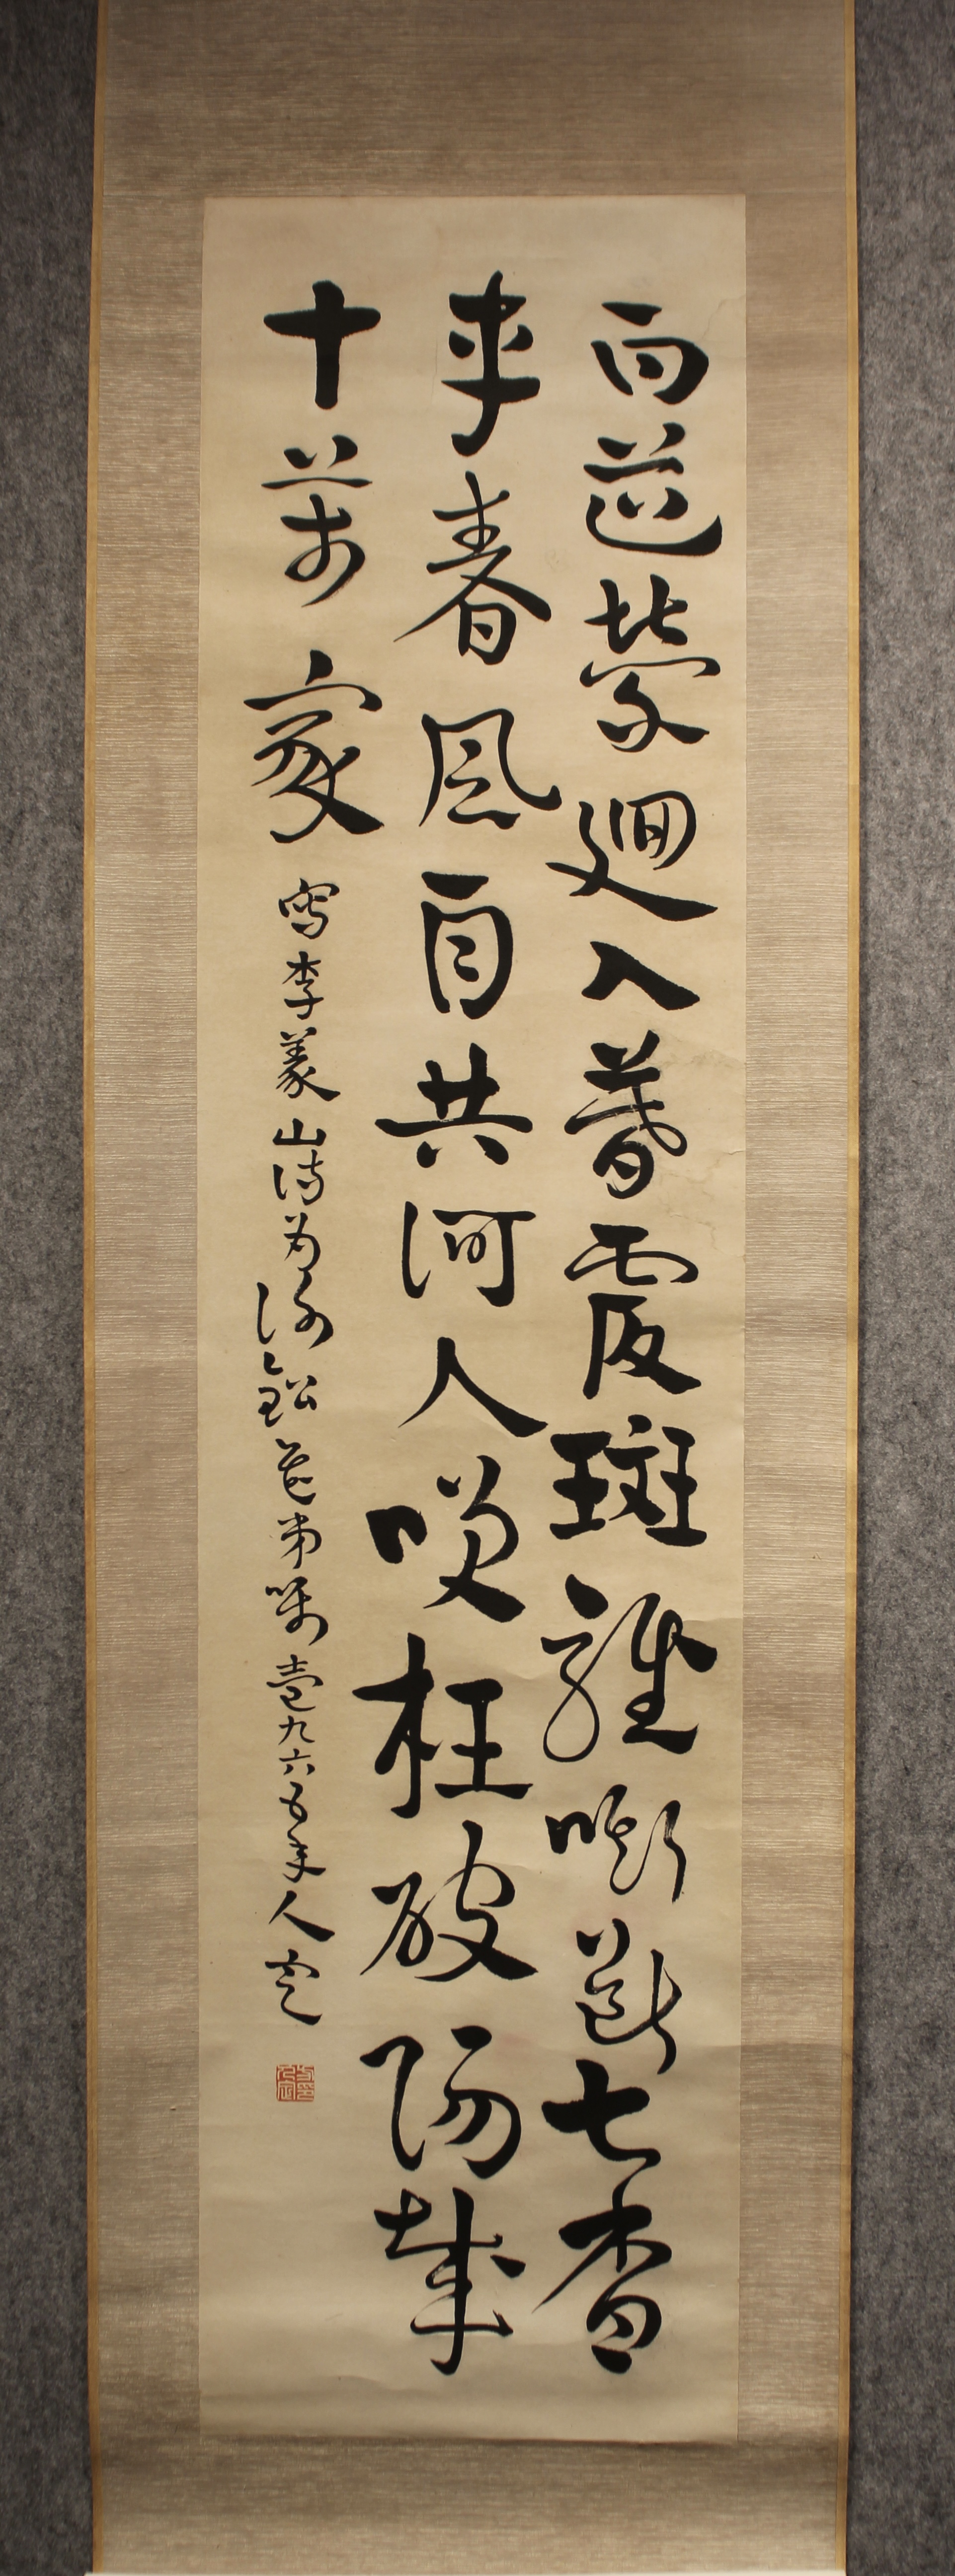 白道縈迴入暮霞斑騅嘶斷七香
車春風自共何人笑枉破陽城
十萬家
寫李義山詩為老弟囑壹九六五年人定